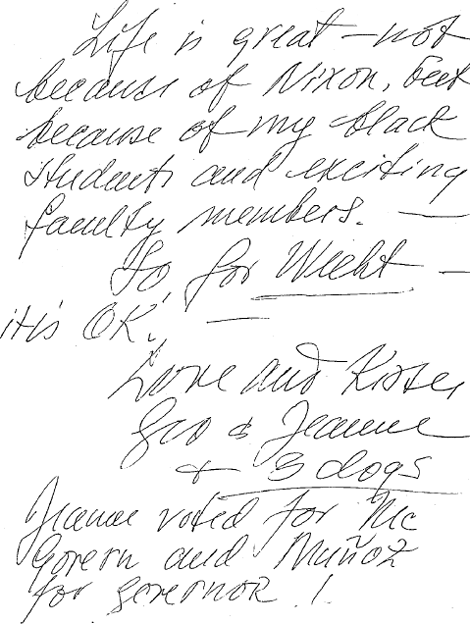 Life is great — not
because of Nixon, but
because of my black
students and exciting
faculty members. —
So for —
it's OK! —
Love and Kisses,
Geo & Jeanne
+ 3 dogs
Jeanne voted for Mc
Govern and Muñoz
for governor !